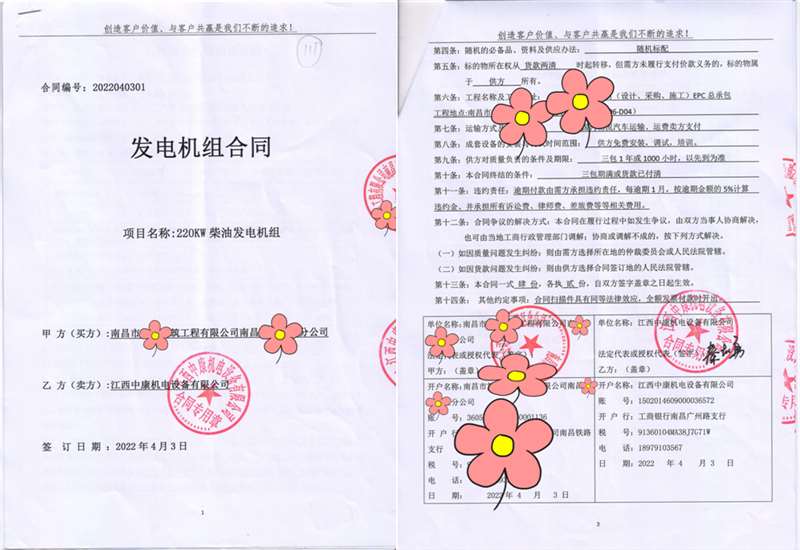 创造客户价值、与客户共赢是我们不断的追求！
合同编号：2022040301
发电机组合同
项目名称:220KW 柴油发电机组
甲 方（买方）：南昌市 筑工程有限公司南昌 分公司
乙 方（卖方）：江西中康机电设备有限公司
江西中康机电设备有限公司
合同专用章
签 订 日 期：2022 年 4 月 3 日
1
创造客户价值、与客户共赢是我们不断的追求！
第四条：随机的必备品、资料及供应办法： 随机标配
第五条：标的物所在权从 货款两清 时起转移，但需方未履行支付价款义务的，标的物属
于 供方 所有。
第六条：工程名称及 （设计、采购、施工）EPC 总承包
工程地点:南昌市 -D04)
第七条：运输方式及 汽车运输，运费卖方支付
第八条：成套设备的 时间范围： 供方免费安装，调试，培训。
第九条：供方对质量负责的条件及期限： 三包 1 年或 1000 小时，以先到为准
第十条：本合同终结的条件： 三包期满或货款已付清
第十一条：违约责任：逾期付款由需方承担违约责任，每逾期 1 月，按逾期金额的 5%计算
违约金，并承担所有诉讼费、律师费、差旅费等等相关费用。
第十二条：合同争议的解决方式：本合同在履行过程中如发生争议，由双方当事人协商解决，
也可由当地工商行政管理部门调解；协商或调解不成的，按下列方式解决。
（一）如因质量问题发生纠纷：则由需方选择所在地的仲裁委员会或人民法院管辖。
（二）如因货款问题发生纠纷：则由供方选择合同签订地的人民法院管辖。
第十三条：本合同一式 肆 份，各执 贰 份，自双方签字盖章之日起生效。
第十四条： 其他约定事项：合同扫描件具有同等法律效应，全额发票付款时开出
单位名称：南昌市 工程有限公司南
分公司
法定代表或授权代表（签字）
甲方：（盖章）
单位名称：江西中康机电设备有限公司
法定代表或授权代表（签字）
乙方：（盖章）
合同专用章
开户名称：南昌市 有限公司南昌
分公司
账 号：3605 0001136
开 户 行 司南昌铁路
支行
税 号：
电 话：
日 期： 2022 年 4 月 3 日
开户名称：江西中康机电设备有限公司
账 号：1502014609000036572
开 户 行：工商银行南昌广州路支行
税 号：91360104MA38J7G71W
电 话：18979103567
日 期：2022 年 4 月 3 日